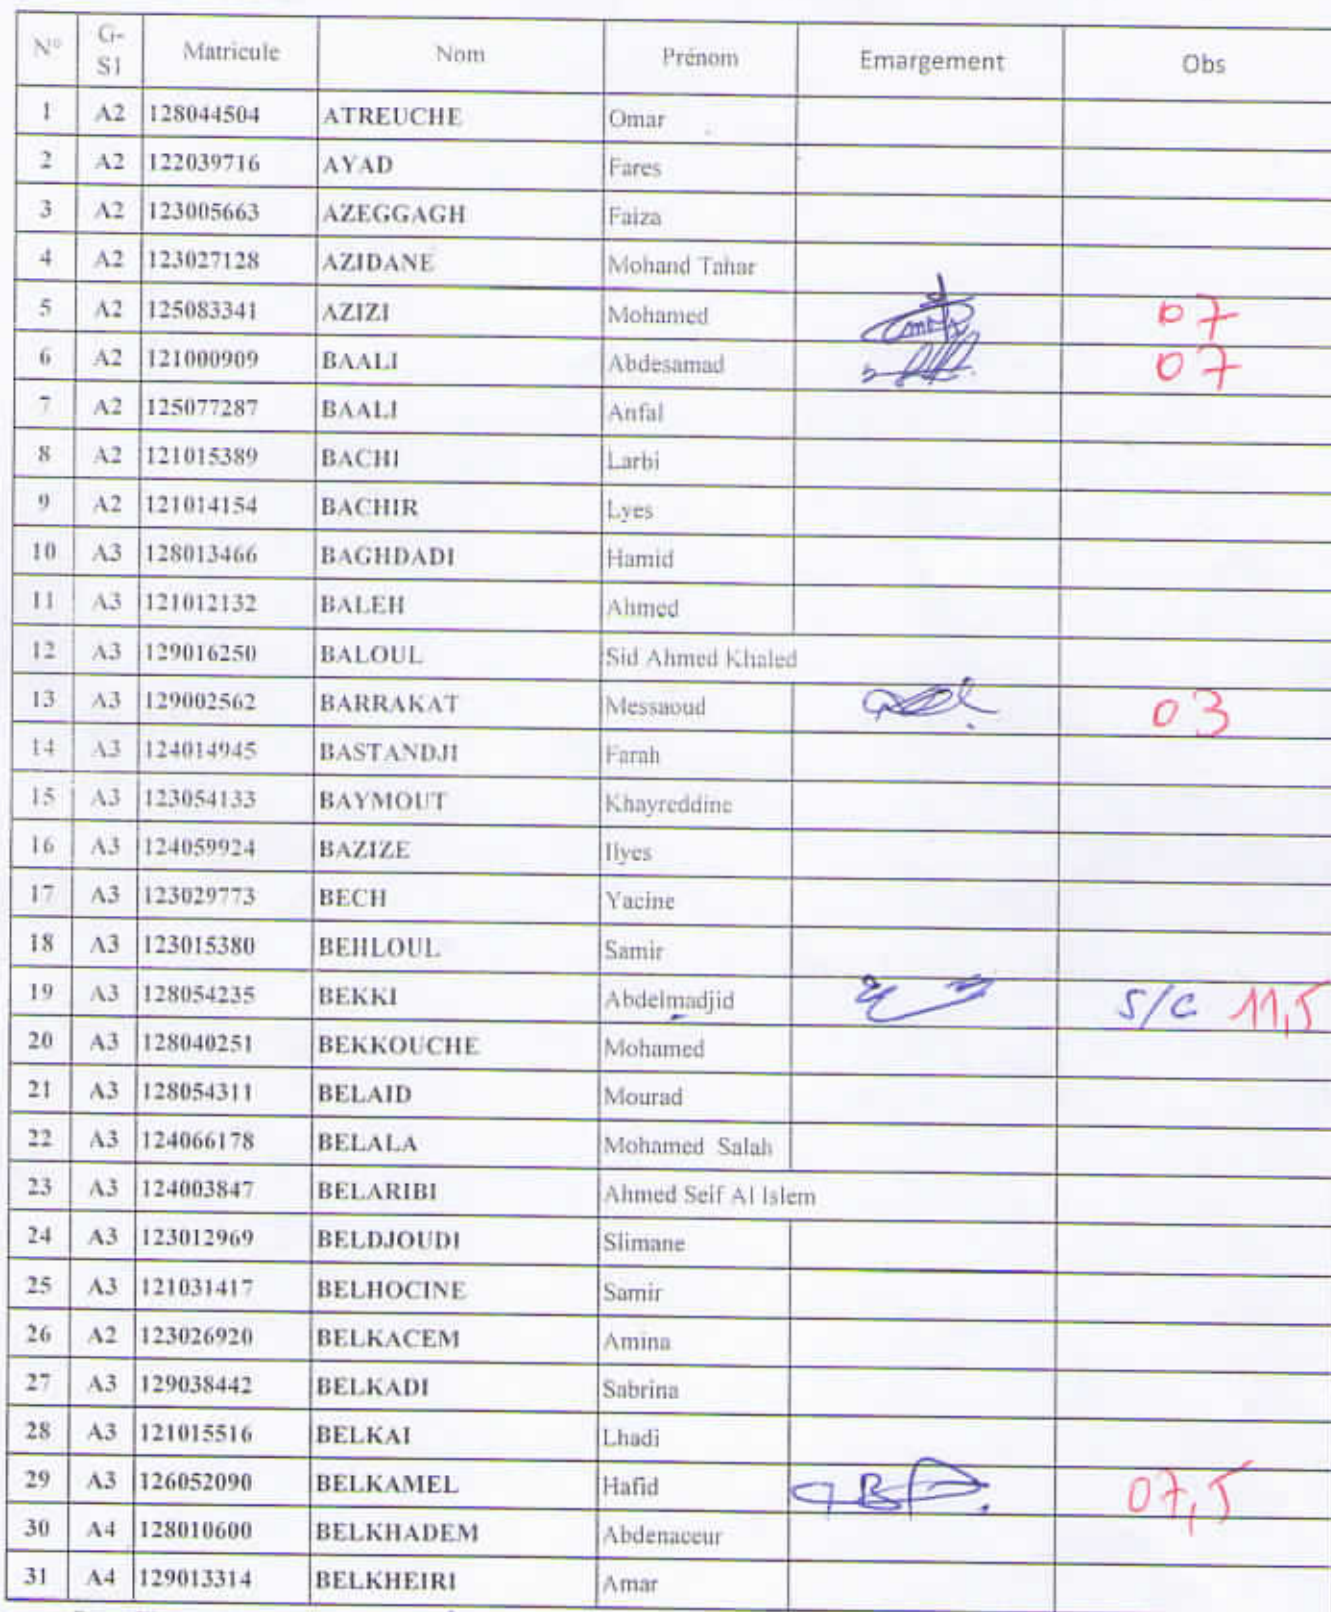 N° G-S1 Matricule Nom Prénom Emargement Obs
1 A2 128044504 ATREUCHE Omar
2 A2 122039716 AYAD Fares
3 A2 123005663 AZEGGAGH Faiza
4 A2 123027128 AZIDANE Mohand Tahar
5 A2 125083341 AZIZI Mohamed 07
6 A2 121000909 BAALI Abdesamad 07
7 A2 125077287 BAALI Anfal
8 A2 121015389 BACHI Larbi
9 A2 121014154 BACHIR Lyes
10 A3 128013466 BAGHDADI Hamid
11 A3 121012132 BALEH Ahmed
12 A3 129016250 BALOUL Sid Ahmed Khaled
13 A3 129002562 BARRAKAT Messaoud 03
14 A3 124014945 BASTANDJI Farah
15 A3 123054133 BAYMOUT Khayreddine
16 A3 124059924 BAZIZE Ilyes
17 A3 123029773 BECH Yacine
18 A3 123015380 BEHLOUL Samir
19 A3 128054235 BEKKI Abdelmadjid S/C 11,5
20 A3 128040251 BEKKOUCHE Mohamed
21 A3 128054311 BELAID Mourad
22 A3 124066178 BELALA Mohamed Salah
23 A3 124003847 BELARIBI Ahmed Seif Al Islem
24 A3 123012969 BELDJOUDI Slimane
25 A3 121031417 BELHOCINE Samir
26 A2 123026920 BELKACEM Amina
27 A3 129038442 BELKADI Sabrina
28 A3 121015516 BELKAI Lhadi
29 A3 126052090 BELKAMEL Hafid 07,5
30 A4 128010600 BELKHADEM Abdenaceur
31 A4 129013314 BELKHEIRI Amar